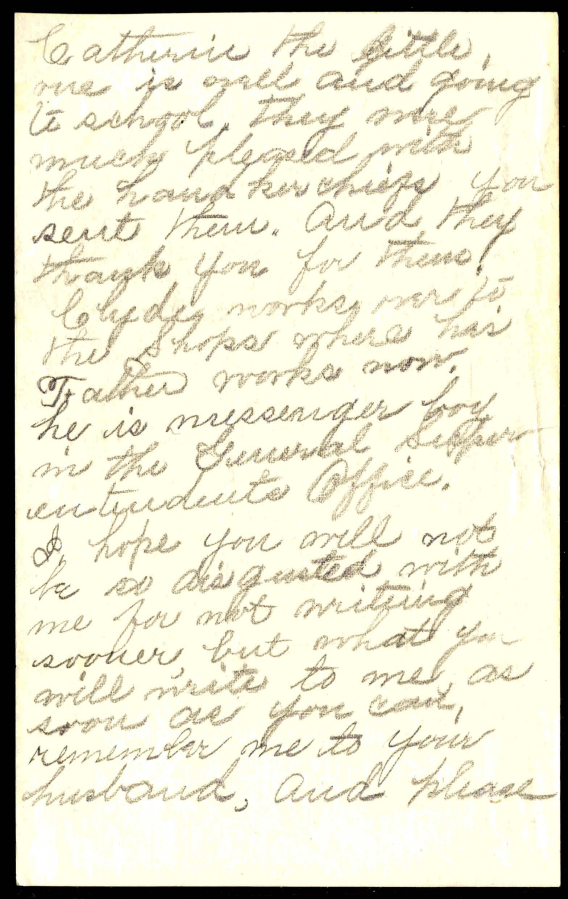 Catherine the little,
one is well and going
to school, they were
much pleased with
the handkerchiefs you
sent them. And they
thank you for them,
Clyde, works over to
the Shops where his
Father works now.
he is messenger boy
in the General Super
entendents Office.
I hope you will not
be so disgusted with
me for not writing
sooner, but what you
will write to me, as
soon as you can,
remember me to your
husband, And please